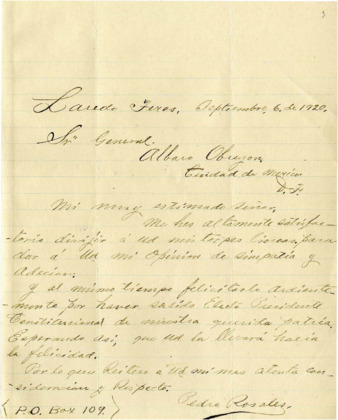 Laredo Texas, Septiembre, 6, de 1920.
Sr. General.
Albaro Obregon,
Ciudad de Mexico
D. F.
Mi muy estimado señor,
Me hes altamente satisfac-
-toria dirigir á Ud mis torpes lineas, para
dar á Ud mi Opinion de simpatia y
Adecion.
y al mismo tiempo felicitarla ardiente-
-mente, por haver salido Eleto Presidente
Constitucional de nuestra querida patria,
Esperando así, que Ud la llevará hacia
la felicidad.
Por lo que Reitero á Ud mi mas atenta con-
-sideracion y Respecto.
Pedro Rosales.
P.O. Box 109.